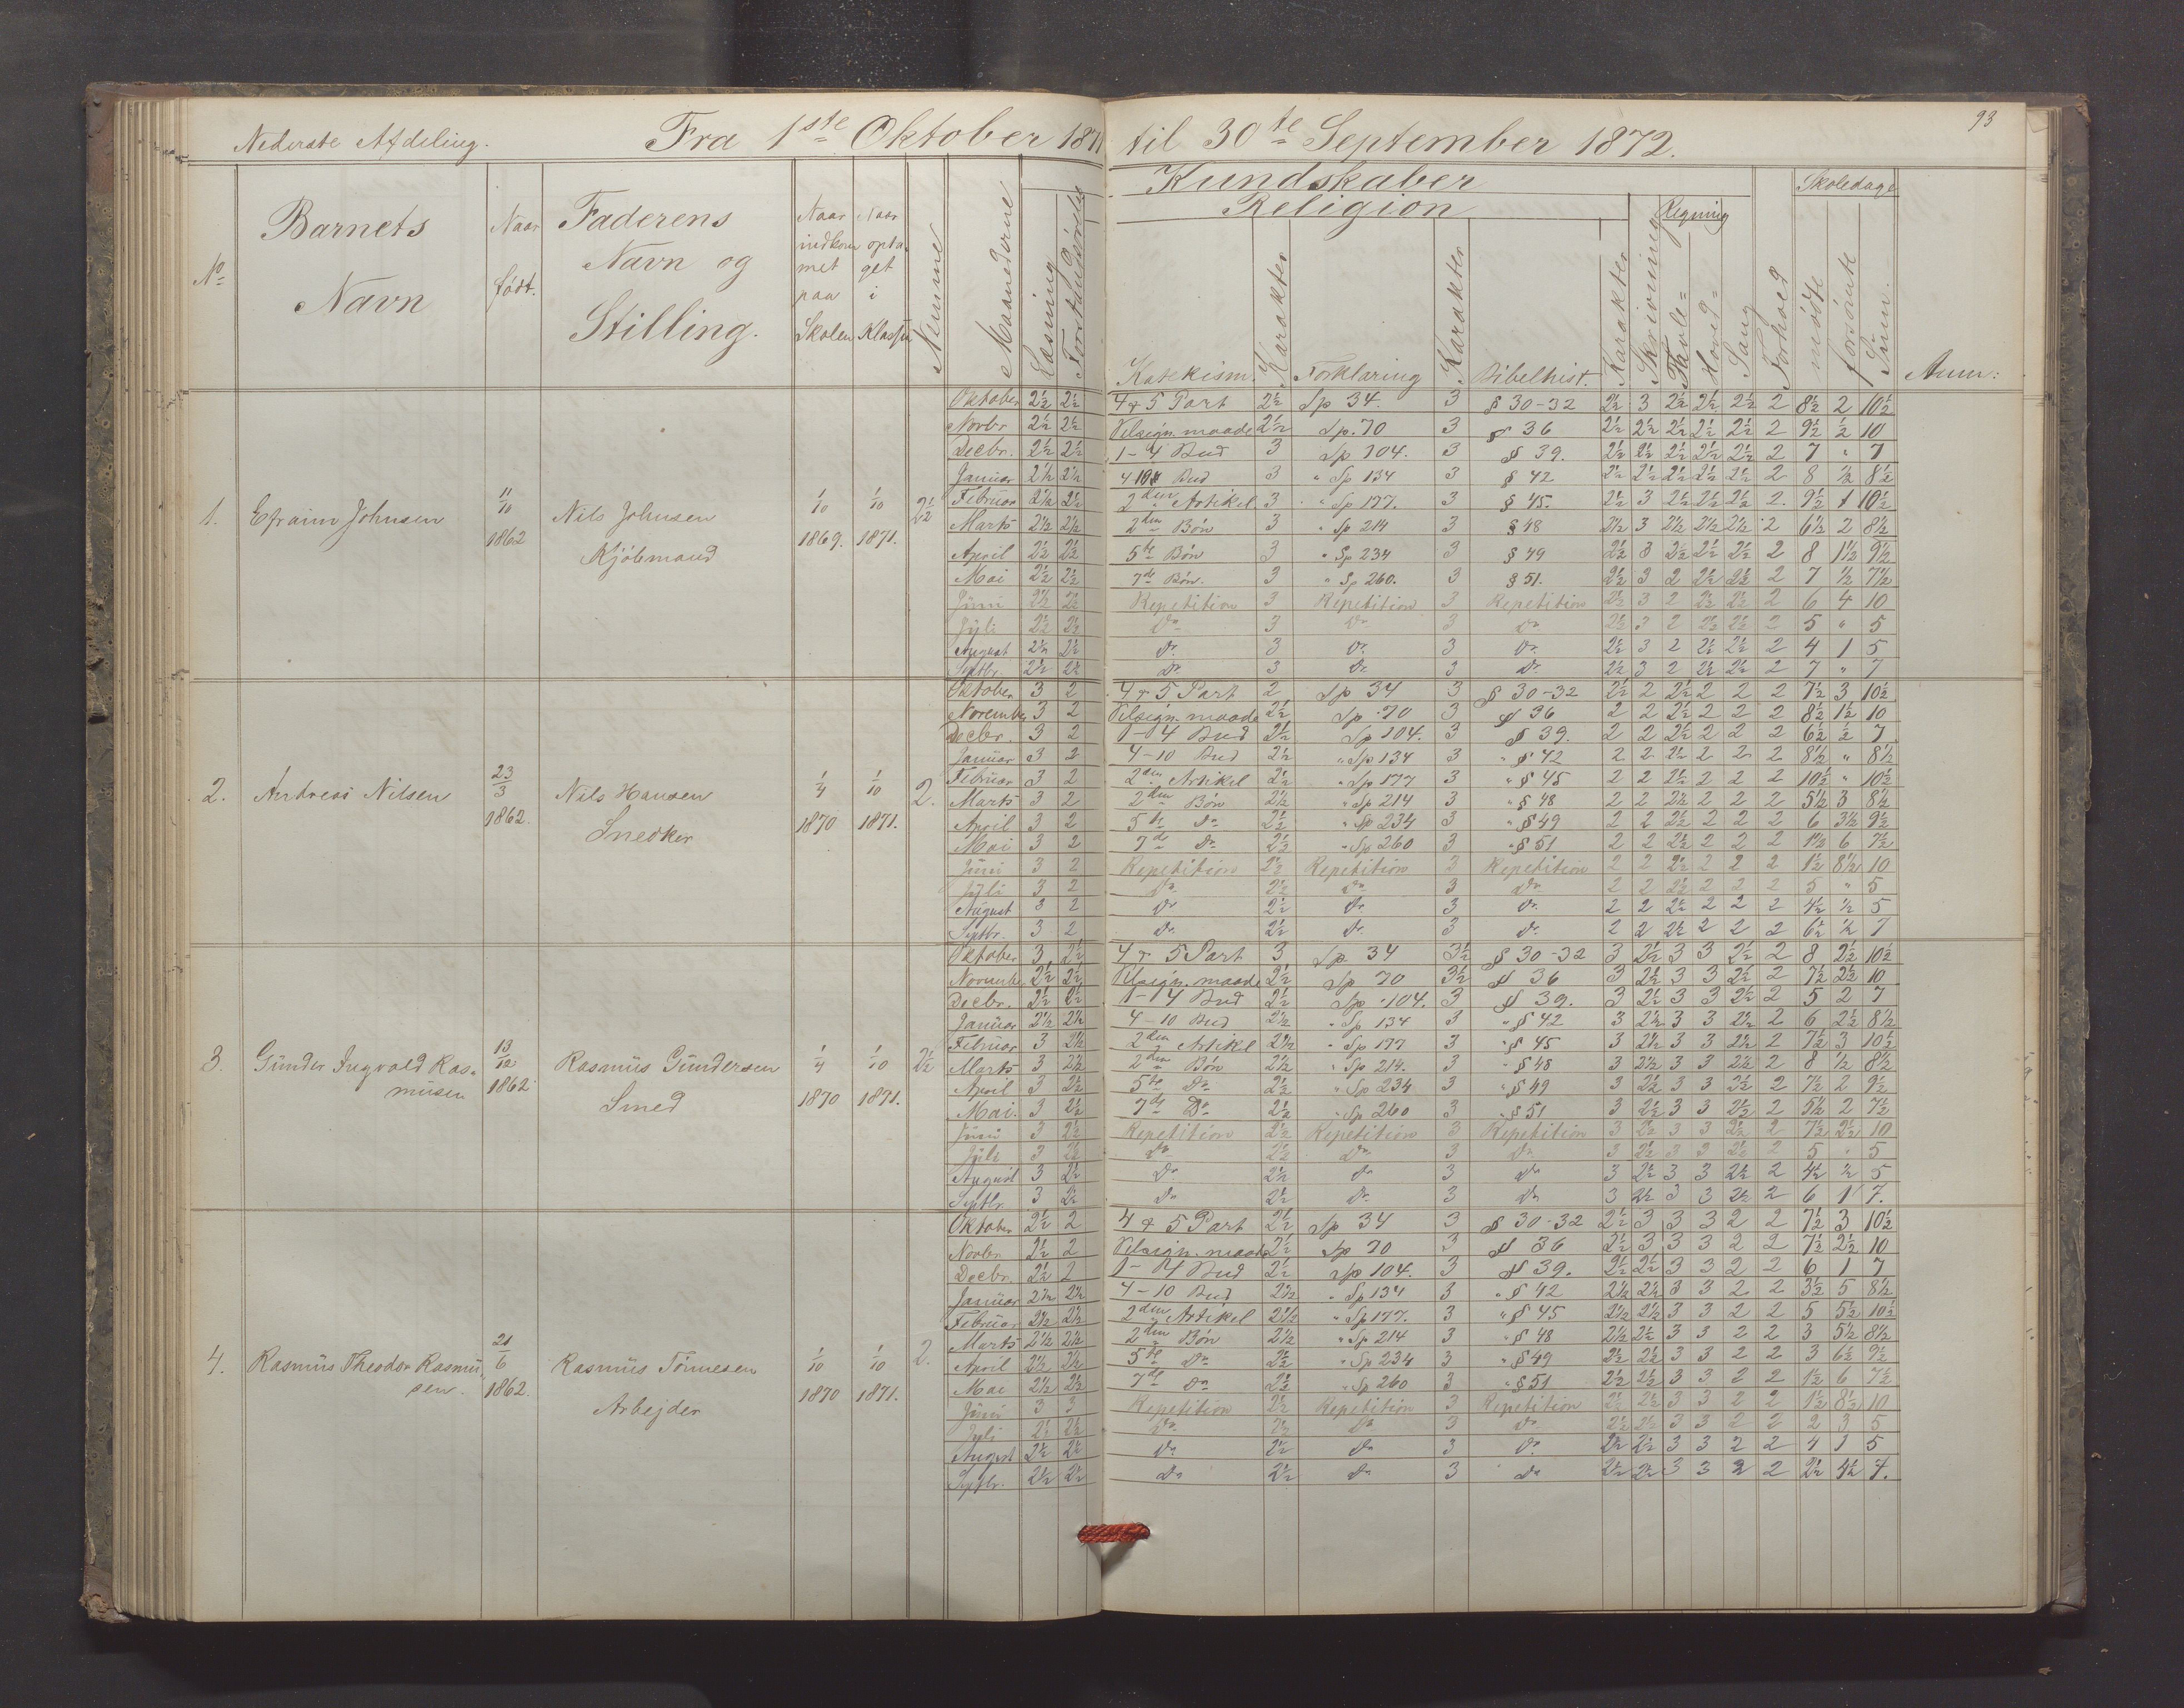 93
Nederste Afdeling. Fra 1ste Oktober 1871 til 30te September 1872.
Kundskaber Skoledage
Religion Regning
No Barnets Navn Naar født. Faderens Navn og Stilling. Naar indkommet paa Skolen Naar optaget i Klassen Nummer Maanederne Læsning Forstandsøvelse Katekism. Karakter Forklaring Karakter Bibelhist. Karakter Skrivning Tavle= Hoved= Sang Forhold mødte forsømte Sum. Anm:
1. Efraim Johnsen 11/10 1862 Nils Johnsen Kjøbmand 1/10 1869. 1/10 1871. 2½
Oktober 2½ 2½ 4 & 5 Part 2½ Sp 34. 3 § 30-32 2½ 3 2½ 2½ 2½ 2 8½ 2 10½
Novbr 2½ 2½ Velsign. maade 2½ Sp. 70 3 § 36 2½ 2½ 2½ 2½ 2½ 2 9½ ½ 10
Decbr. 2½ 2½ 1-4 Bud 3 Sp 104. 3 § 39. 2½ 2½ 2½ 2½ 2½ 2 7 " 7
Januar 2½ 2½ Bud 3 " Sp 134 3 § 42 2½ 2½ 2½ 2½ 2½ 2 8 ½ 8½
Februar 2½ 2½ 2den Artikel 3 " Sp 177. 3 § 45. 2½ 3 2½ 2½ 2½ 2. 9½ 1 10½
Marts 2½ 2½ 2den Bøn 3 " Sp 214 3 § 48 2½ 3 2½ 2½ 2½ 2 6½ 2 8½
April 2½ 2½ 5te Bøn 3 " Sp 234 3 § 49 2½ 3 2½ 2½ 2½ 2 8 1½ 9½
Mai 2½ 2½ 7de Bøn. 3 " Sp 260. 3 § 51. 2½ 3 2 2½ 2½ 2 7 ½ 7½
Juni 2½ 2½ Repetition 3 Repetition 3 Repetition 2½ 3 2 2½ 2½ 2 6 4 10
Juli 2½ 2½ Do 3 Do 3 Do 2½ 3 2 2½ 2½ 2 5 " 5
August 2½ 2½ Do 3 Do 3 Do 2½ 3 2 2½ 2½ 2 4 1 5
Septbr. 2½ 2½ Do 3 Do 3 Do 2½ 3 2 2½ 2½ 2 7 " 7
2. Andreas Nilsen 23/3 1862. Nils Hansen Snedker 1/4 1870 1/10 1871. 2.
Oktober 3 2 4 & 5 Part 2 Sp 34 3 § 30-32 2½ 2 2½ 2 2 2 7½ 3 10½
November 3 2 Velsign. maade 2½ Sp 70 3 § 36 2 2 2½ 2 2 2 8½ 1½ 10
Decbr. 3 2 1-4 Bud 2½ Sp 104. 3 § 39. 2 2 2½ 2 2 2 6½ ½ 7
Januar 3 2 4-10 Bud 2½ " Sp 134 3 " § 42 2 2 2½ 2 2 2 8½ " 8½
Februar 3 2 2den Artikel 2½ " Sp 177 3 " § 45 2 2 2½ 2 2 2 10½ " 10½
Marts 3 2 2den Bøn 2½ " Sp 214 3 " § 48 2 2 2½ 2 2 2 5½ 3 8½
April 3 2 5te Do 2½ " Sp 234 3 " § 49 2 2 2½ 2 2 2 6 3½ 9½
Mai 3 2 7de Do 2½ " Sp 260 3 " § 51 2 2 2½ 2 2 2 1½ 6 7½
Juni 3 2 Repetition 2½ Repetition 3 Repetition 2 2 2½ 2 2 2 1½ 8½ 10
Juli 3 2 Do 2½ Do 3 Do 2 2 2½ 2 2 2 5 " 5
August 3 2 Do 2½ Do 3 Do 2 2 2½ 2 2 2 4½ ½ 5
Septbr. 3 2 Do 2½ Do 3 Do 2 2 2½ 2 2 2 6½ ½ 7
3. Gunder Ingvald Rasmusen 13/12 1862 Rasmus Gundersen Smed 1/4 1870 1/10 1871. 2½
Oktober 3 2½ 4 & 5 Part 3 Sp 34 3½ § 30-32 3 2½ 3 3 2½ 2 8 2½ 10½
Novembr 2½ 2½ Velsign. maade 2½ Sp 70 3½ § 36 3 2½ 3 3 2½ 2 7½ 2½ 10
Decbr. 2½ 2½ 1-4 Bud 2½ Sp 104. 3 § 39. 3 2½ 3 3 2½ 2 5 2 7
Januar 2½ 2½ 4-10 Bud 2½ " Sp 134 3 " § 42 3 2½ 3 3 2½ 2 6 2½ 8½
Februar 3 2½ 2den Artikel 2½ " Sp 177 3 " § 45 3 2½ 3 3 2½ 2 7½ 3 10½
Marts 3 2½ 2den Bøn 2½ " Sp 214. 3 " § 48 3 2½ 3 3 2½ 2 8 ½ 8½
April 3 2½ 5te Do 2½ " Sp 234 3 " § 49 3 2½ 3 3 2½ 2 7½ 2 9½
Mai. 3 2½ 7de Do 2½ " Sp 260 3 " § 51 3 2½ 3 3 2½ 2 5½ 2 7½
Juni 3 2½ Repetition 2½ Repetition 3 Repetition 3 2½ 3 3 2½ 2 7½ 2½ 10
Juli 3 2½ Do 2½ Do 3 Do 3 2½ 3 3 2½ 2 5 " 5
August 3 2½ Do 2½ Do 3 Do 3 2½ 3 3 2½ 2 4½ ½ 5
Septbr. 3 2½ Do 2½ Do 3 Do 3 2½ 3 3 2½ 2 6 1 7.
4. Rasmus Theodor Rasmusen. 21/6 1862. Rasmus Tönnesen Arbejder 1/10 1870 1/10 1871. 2.
Oktober 2½ 2 4 & 5 Part 2½ Sp 34 3 § 30-32 2½ 3 3 3 2 2 7½ 3 10½
Novbr. 2½ 2 Velsign. maade 2½ Sp 70 3 § 36 2½ 3 3 3 2 2 7½ 2½ 10
Decbr. 2½ 2 1-4 Bud 2½ Sp 104. 3 § 39. 2½ 2½ 3 3 2 2 6 1 7
Januar 2½ 2½ 4-10 Bud 2½ " Sp 134 3 " § 42 2½ 2½ 3 3 2 2 3½ 5 8½
Februar 2½ 2½ 2den Artikel 2½ " Sp 177. 3 " § 45 2½ 2½ 3 3 2 2 5 5½ 10½
Marts 2½ 2½ 2den Bøn 2½ " Sp 214 3 " § 48 2½ 2½ 3 3 2 2 3 5½ 8½
April 2½ 2½ 5te Do 2½ " Sp 234 3 " § 49 2½ 2½ 3 3 2 2 3 6½ 9½
Mai 2½ 2½ 7de Do 2½ " Sp 260 3 " § 51 2½ 2½ 3 3 2 2 1½ 6 7½
Juni 3 3 Repetition 2½ Repetition 3 Repetition 2½ 2½ 3 3 2 2 1½ 8½ 10
Juli 2½ 2½ Do 2½ Do 3 Do 2½ 2½ 3 3 2 2 2 3 5
August 2½ 2½ Do 2½ Do 3 Do 2½ 2½ 3 3 2 2 4 1 5
Septbr. 2½ 2½ Do 2½ Do 3 Do 2½ 2½ 3 3 2 2 2½ 4½ 7.